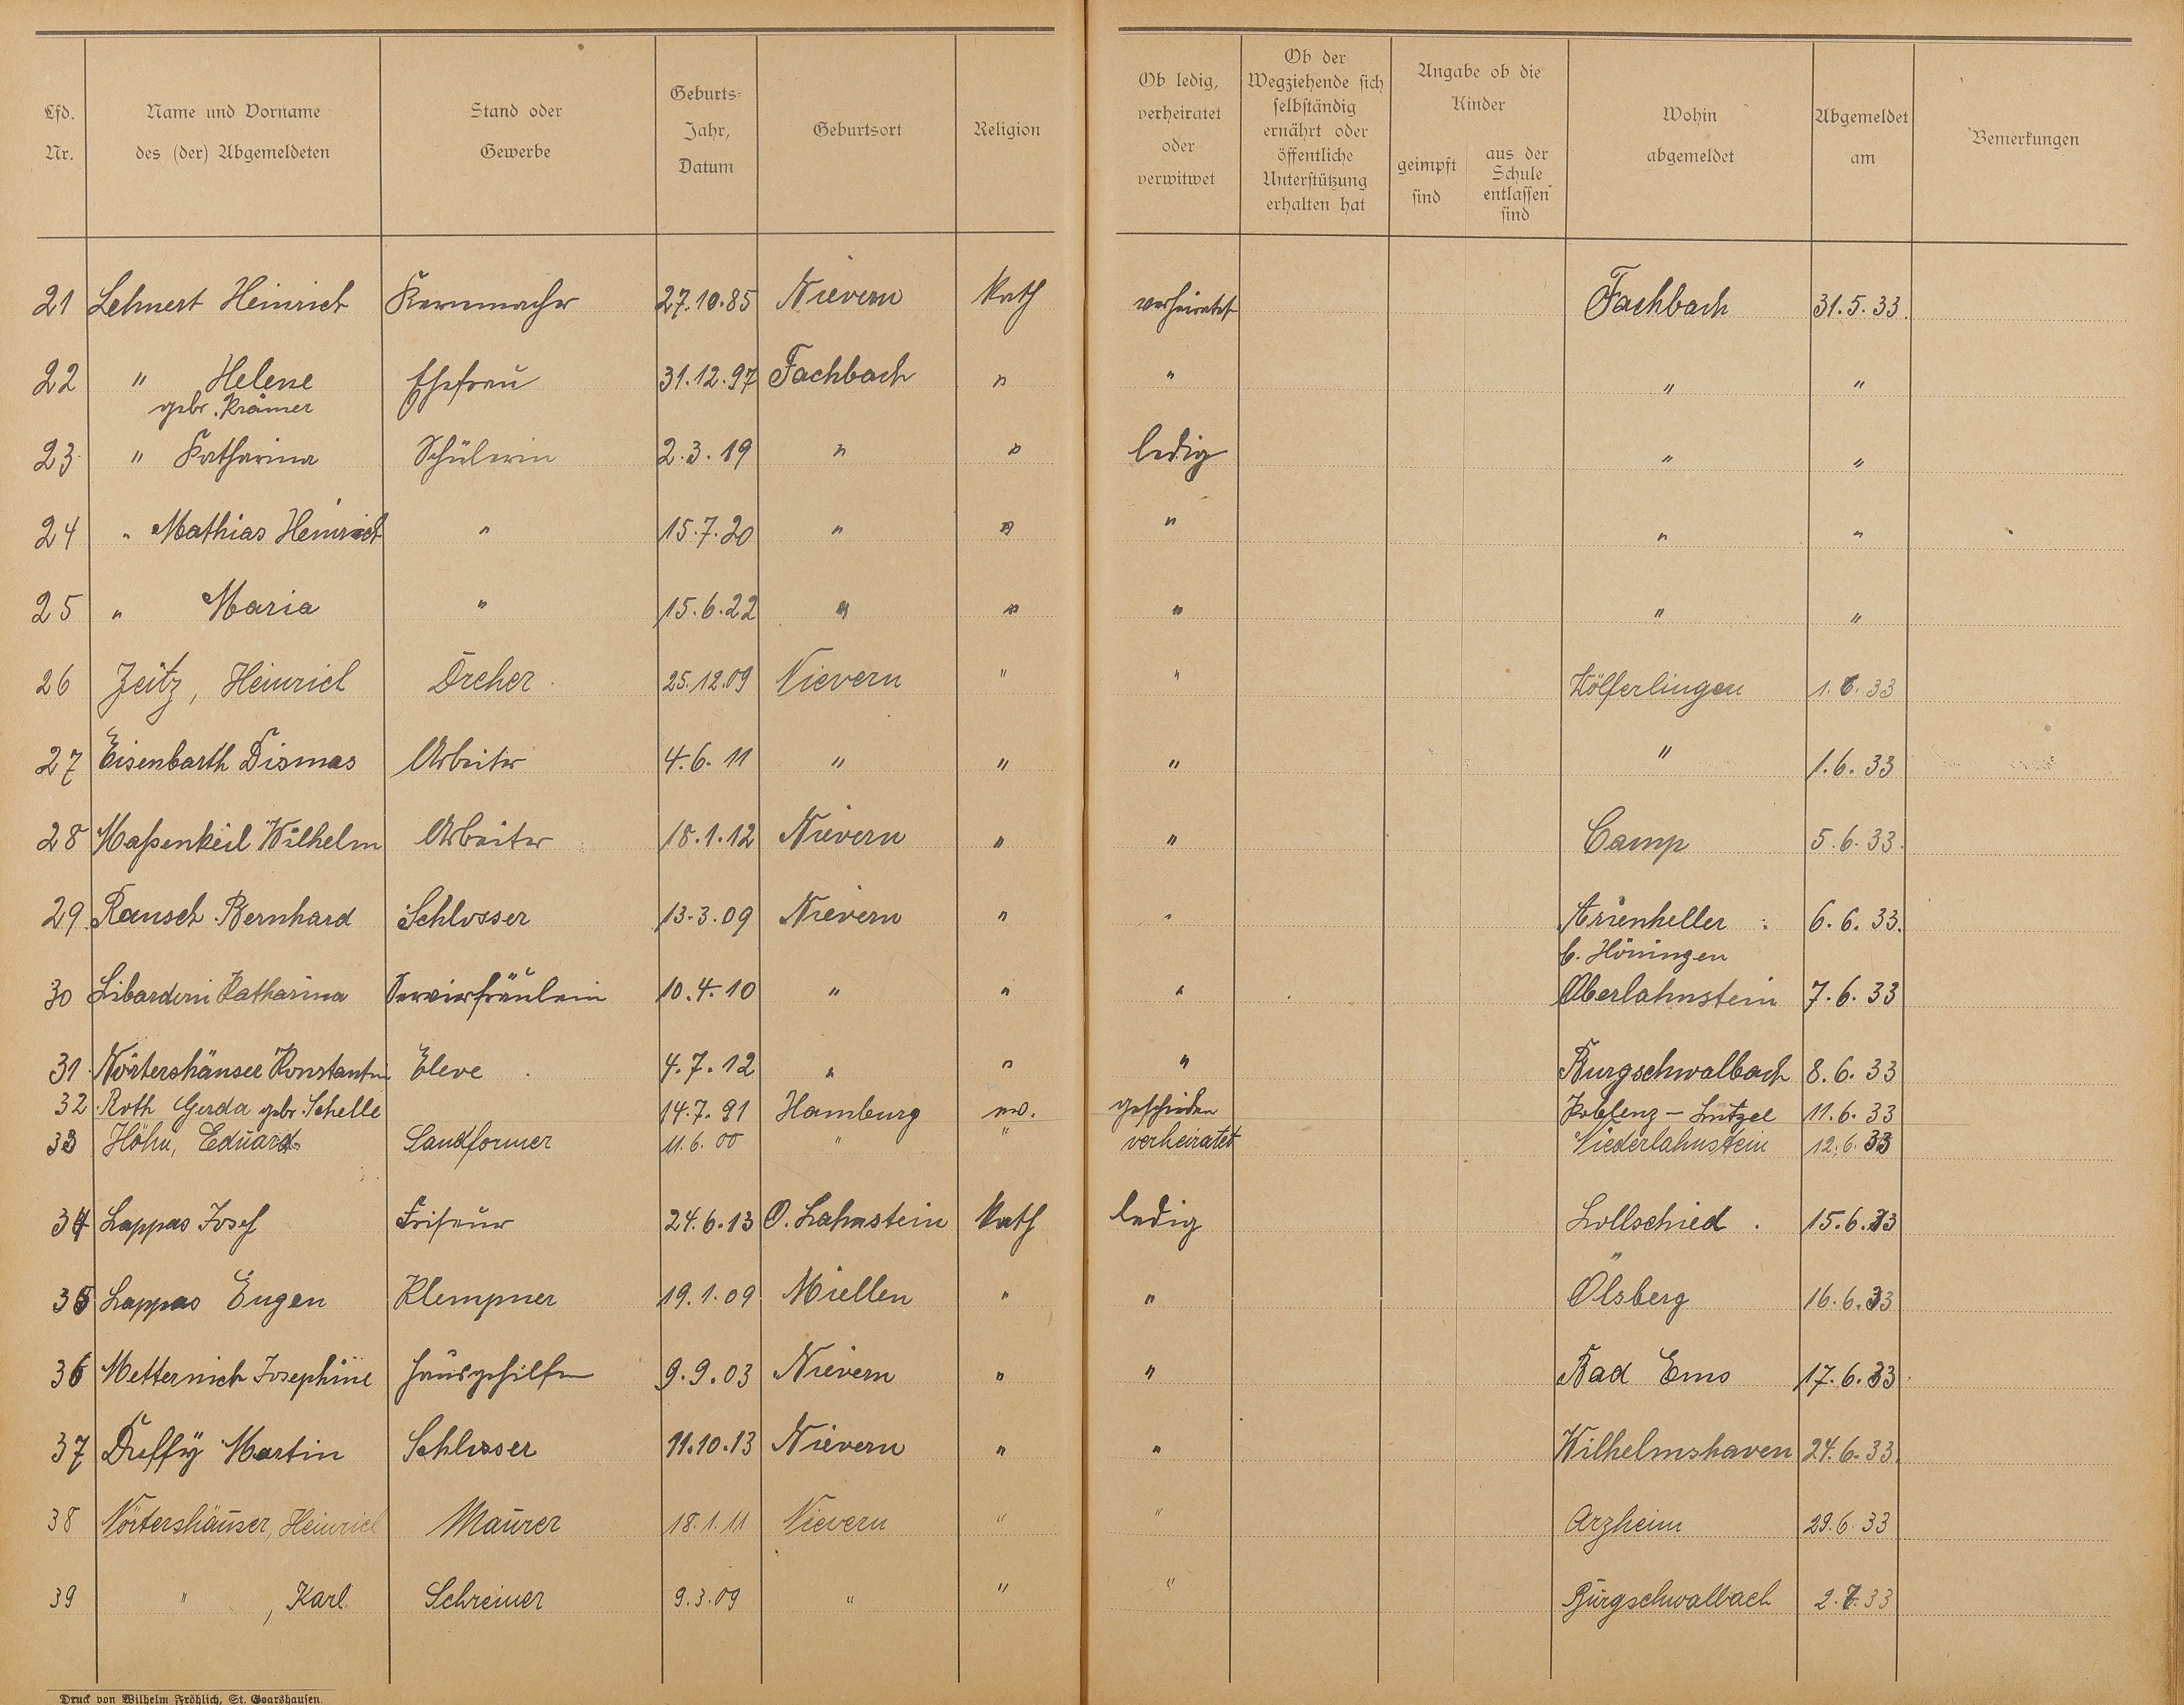 Lfd. Nr.
Name und Vorname des (der) Abgemeldeten
Stand oder Gewerbe
Geburts-Jahr, Datum
Geburtsort
Religion
Ob ledig, verheiratet oder verwitwet
Ob der Wegziehende sich selbständig ernährt oder öffentliche Unterstützung erhalten hat
Angabe ob die Kinder
geimpft sind
aus der Schule entlassen sind
Wohin abgemeldet
Abgemeldet am
Bemerkungen
21 Lehnert Heinrich Kernmacher 27.10.85 Nievern Kath verheiratet Fachbach 31.5.33.
22 " Helene Ehefrau 31.12.97 Fachbach " " " "
gebr. Krämer
23 " Katharina Schülerin 2.3.19 " " ledig " "
24 " Mathias Heinrich " 15.7.20 " " " " "
25 " Maria " 15.6.22 " " " " "
26 Zeitz, Heinrich Dreher 25.12.09 Nievern " " Hölferlingen 1.6.33
27 Eisenbarth Dismas Arbeiter 4.6.11 " " " " 1.6.33
28 Maßenkeil Wilhelm Arbeiter 18.1.12 Nievern " " Camp 5.6.33.
29 Rausch Bernhard Schlosser 13.3.09 Nievern " " Arienheller 6.6.33.
b. Höningen
30 Libardoni Katharina Servierfräulein 10.4.10 " " " Oberlahnstein 7.6.33
31 Nörtershäuser Konstantin Eleve 4.7.12 " " " Burgschwalbach 8.6.33
32 Roth Gerda gebr. Schelle 14.7.91 Hamburg ev. geschieden Koblenz - Lützel 11.6.33
33 Höhn, Eduard Sandformer 11.6.00 " " verheiratet Niederlahnstein 12.6.33
34 Lappas Josef Friseur 24.6.13 O. Lahnstein Kath ledig Lollschied. 15.6.33
35 Lappas Eugen Klempner 19.1.09 Miellen " " Ölsberg 16.6.33
36 Metternich Josephine Hausgehilfin 9.9.03 Nievern " " Bad Ems 17.6.33.
37 Duffy Martin Schlosser 11.10.13 Nievern " " Wilhelmshaven 24.6.33.
38 Nörtershäuser, Heinrich Maurer 18.1.11 Nievern " " Arzheim 29.6.33
39 ", Karl Schreiner 9.3.09 " " " Burgschwalbach 2.7.33
Druck von Wilhelm Fröhlich, St. Goarshausen.